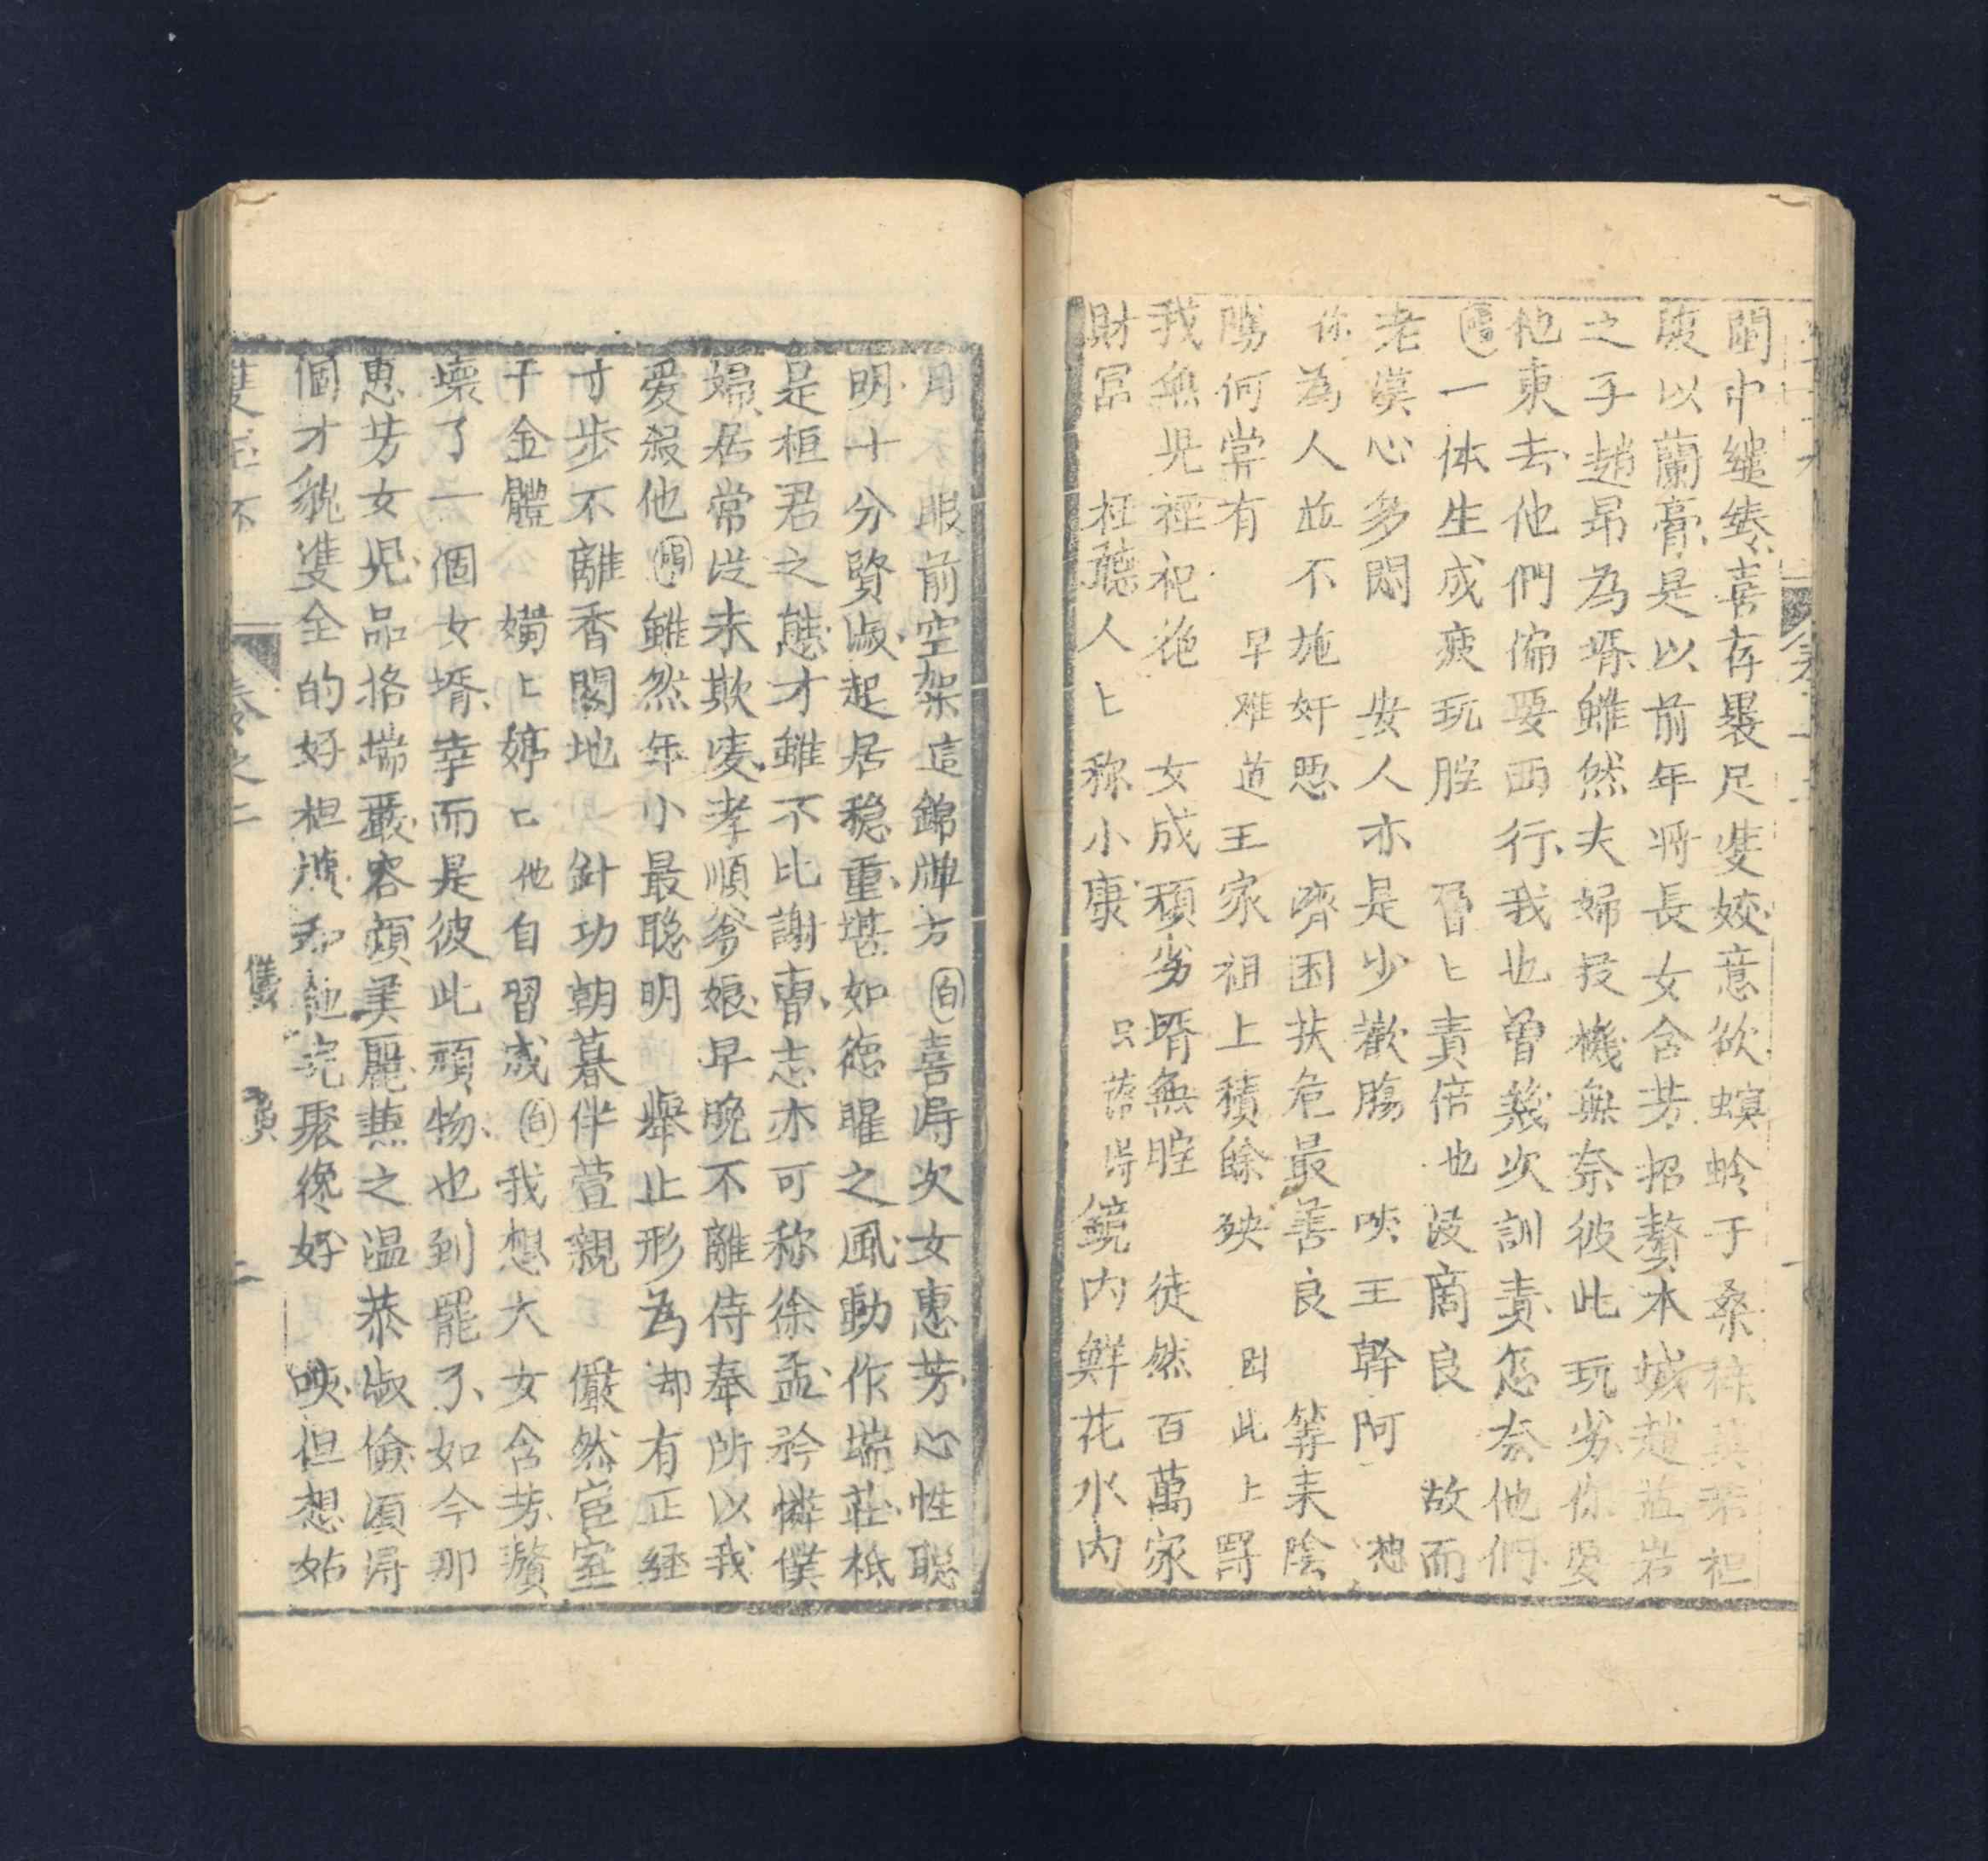 閨中繾綣喜存褁足斐姣意欲螟蛉于桑
腹以蘭膏是以前年將長女含芳招贅本城趙
之子趙昂為壻雖然夫婦投機無奈彼此玩劣你要
他東去他們偏要西行我也曾幾次訓責怎奈他們
唱一体生成疲玩腔 習匕責倍也没商良 故而
老漢心多悶 安人亦是少歡腸 唊王幹阿 想
你為人並不施奸恶 齊困扶危最善良 等耒陰
隲何嘗有 早难道王家祖上積餘殃 因此上罸
我無児禋祀絶 女成頑劣壻無腔 徒然百萬家
財冨 枉聽人匕称小康 只落得鏡内鮮花水内
月 眼前空架這錦牌方白喜得次女惠芳心性聪
明十分賢淑起居穏重堪如德曜之風動作端莊秪
是桓君之態才雖不比謝曺志亦可称徐孟矜憐僕
婦居常從未欺凌孝順爹娘早晚不離侍奉所以我
爱殺他唱雖然年小最聪明 舉止形為却有正経
寸步不離香閣地 針功朝暮伴萱親 儼然宦室
千金體 嫺匕婷匕他自習成白我想大女含芳贅
壞了一個女壻幸而是彼此頑物也到罷了如今那
惠芳女児品格端嚴容顔美麗兼之温恭淑儉須得
個才貌雙全的好相塽和他完聚纔好 唊但想姑
雙玉杯 卷之二 二